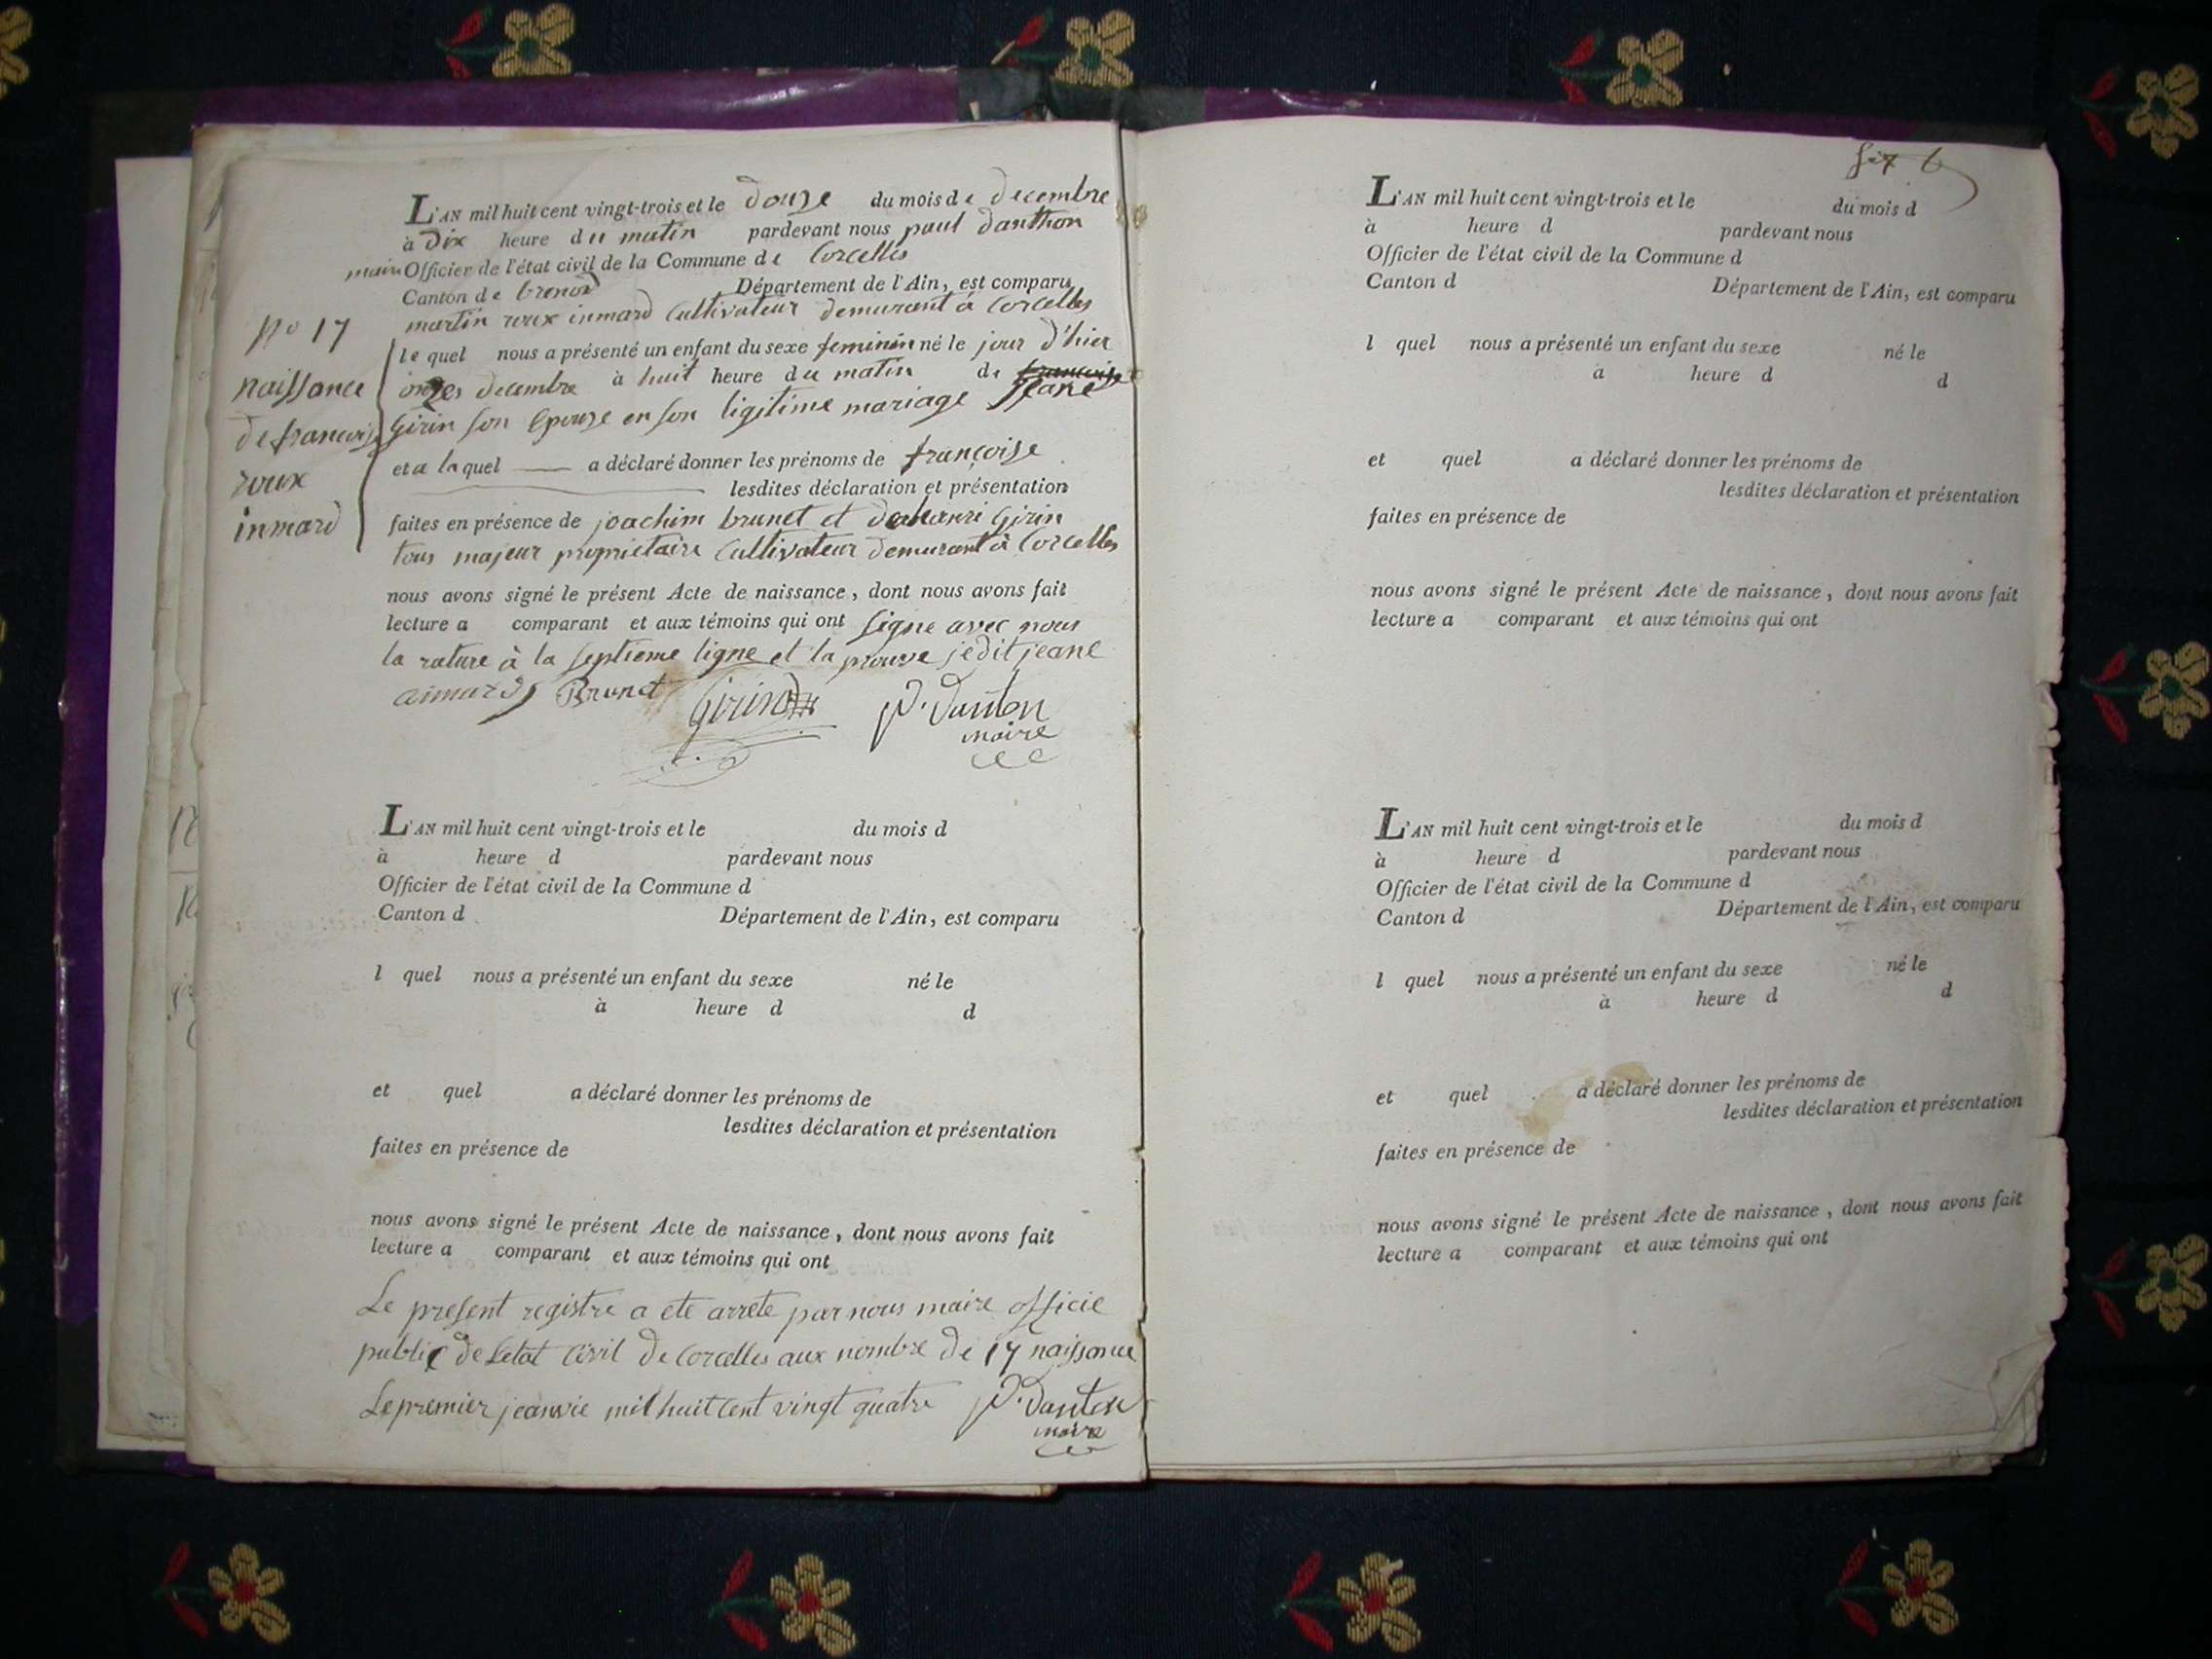 L'AN mil huit cent vingt-trois et le douze du mois de decembre
à dix heure du matin pardevant nous paul danthon
maire Officier de l'état civil de la Commune de Corcelles
Canton de brenod Département de l'Ain, est comparu
martin roux inmard Cultivateur demurant à Corcelles
le quel nous a présenté un enfant du sexe feminin né le jour d'hier
onzes decembre à huit heure du matin de francoise Jeane
Girin son Epouze en son ligitime mariage
et a laquel a déclaré donner les prénoms de françoise
lesdites déclaration et présentation
faites en présence de joachim brunet et de Girin
tous majeur proprietaire Cultivateur demurant à Corcelles
nous avons signé le présent Acte de naissance, dont nous avons fait
lecture a comparant et aux témoins qui ont signe avec nous
la rature à la septieme ligne et la prouve jedit jeane
Brunet Girin P. Danton
maire
no 17
naissance
de francoise
roux
inmard
L'AN mil huit cent vingt-trois et le du mois d
à heure d pardevant nous
Officier de l'état civil de la Commune d
Canton d Département de l'Ain, est comparu
l quel nous a présenté un enfant du sexe né le
à heure d d
et quel a déclaré donner les prénoms de
lesdites déclaration et présentation
faites en présence de
nous avons signé le présent Acte de naissance, dont nous avons fait
lecture a comparant et aux témoins qui ont
Le present registre a ete arrete par nous maire officie
public de Letat Civil de Corcelles aux nombre de 17 naissance
Le premier jeanvie mil huit Cent vingt quatre P. Danton
maire
six 6
L'AN mil huit cent vingt-trois et le du mois d
à heure d pardevant nous
Officier de l'état civil de la Commune d
Canton d Département de l'Ain, est comparu
l quel nous a présenté un enfant du sexe né le
à heure d d
et quel a déclaré donner les prénoms de
lesdites déclaration et présentation
faites en présence de
nous avons signé le présent Acte de naissance, dont nous avons fait
lecture a comparant et aux témoins qui ont
L'AN mil huit cent vingt-trois et le du mois d
à heure d pardevant nous
Officier de l'état civil de la Commune d
Canton d Département de l'Ain, est comparu
l quel nous a présenté un enfant du sexe né le
à heure d d
et quel a déclaré donner les prénoms de
lesdites déclaration et présentation
faites en présence de
nous avons signé le présent Acte de naissance, dont nous avons fait
lecture a comparant et aux témoins qui ont